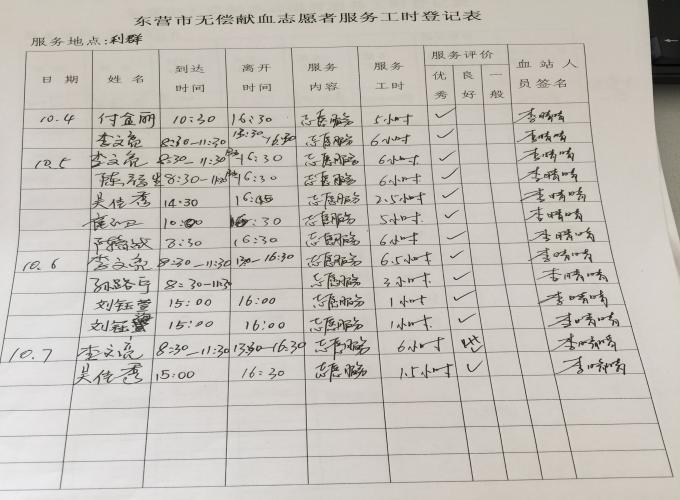 东营市无偿献血志愿者服务工时登记表
服务地点:利群
日期 姓名 到达时间 离开时间 服务内容 服务工时 服务评价 优秀 良好 一般 血站人员签名
10.4 付金丽 10:30 16:30 志愿服务 5小时 ✓ 李晴晴
李文亮 8:30-11:30 13:30-16:30 志愿服务 6小时 ✓ 李晴晴
10.5 李文亮 8:30-11:30 16:30 志愿服务 6小时 ✓ 李晴晴
8:30-11:30 16:30 志愿服务 6小时 ✓ 李晴晴
吴佳秀 14:30 16:45 志愿服务 2.5小时 ✓ 李晴晴
10:00 16:30 志愿服务 5小时 ✓ 李晴晴
8:30 16:30 志愿服务 6小时 ✓ 李晴晴
10.6 李文亮 8:30-11:30 130-16:30 志愿服务 6.5小时 ✓ 李晴晴
8:30-11:30 志愿服务 3小时 ✓ 李晴晴
刘钰萱 15:00 16:00 志愿服务 1小时 ✓ 李晴晴
刘钰 15:00 16:00 志愿服务 1小时 ✓ 李晴晴
10.7 李文亮 8:30-11:30 13:30-16:30 志愿服务 6小时 李晴晴
吴佳秀 15:00 16:30 志愿服务 1.5小时 ✓ 李晴晴